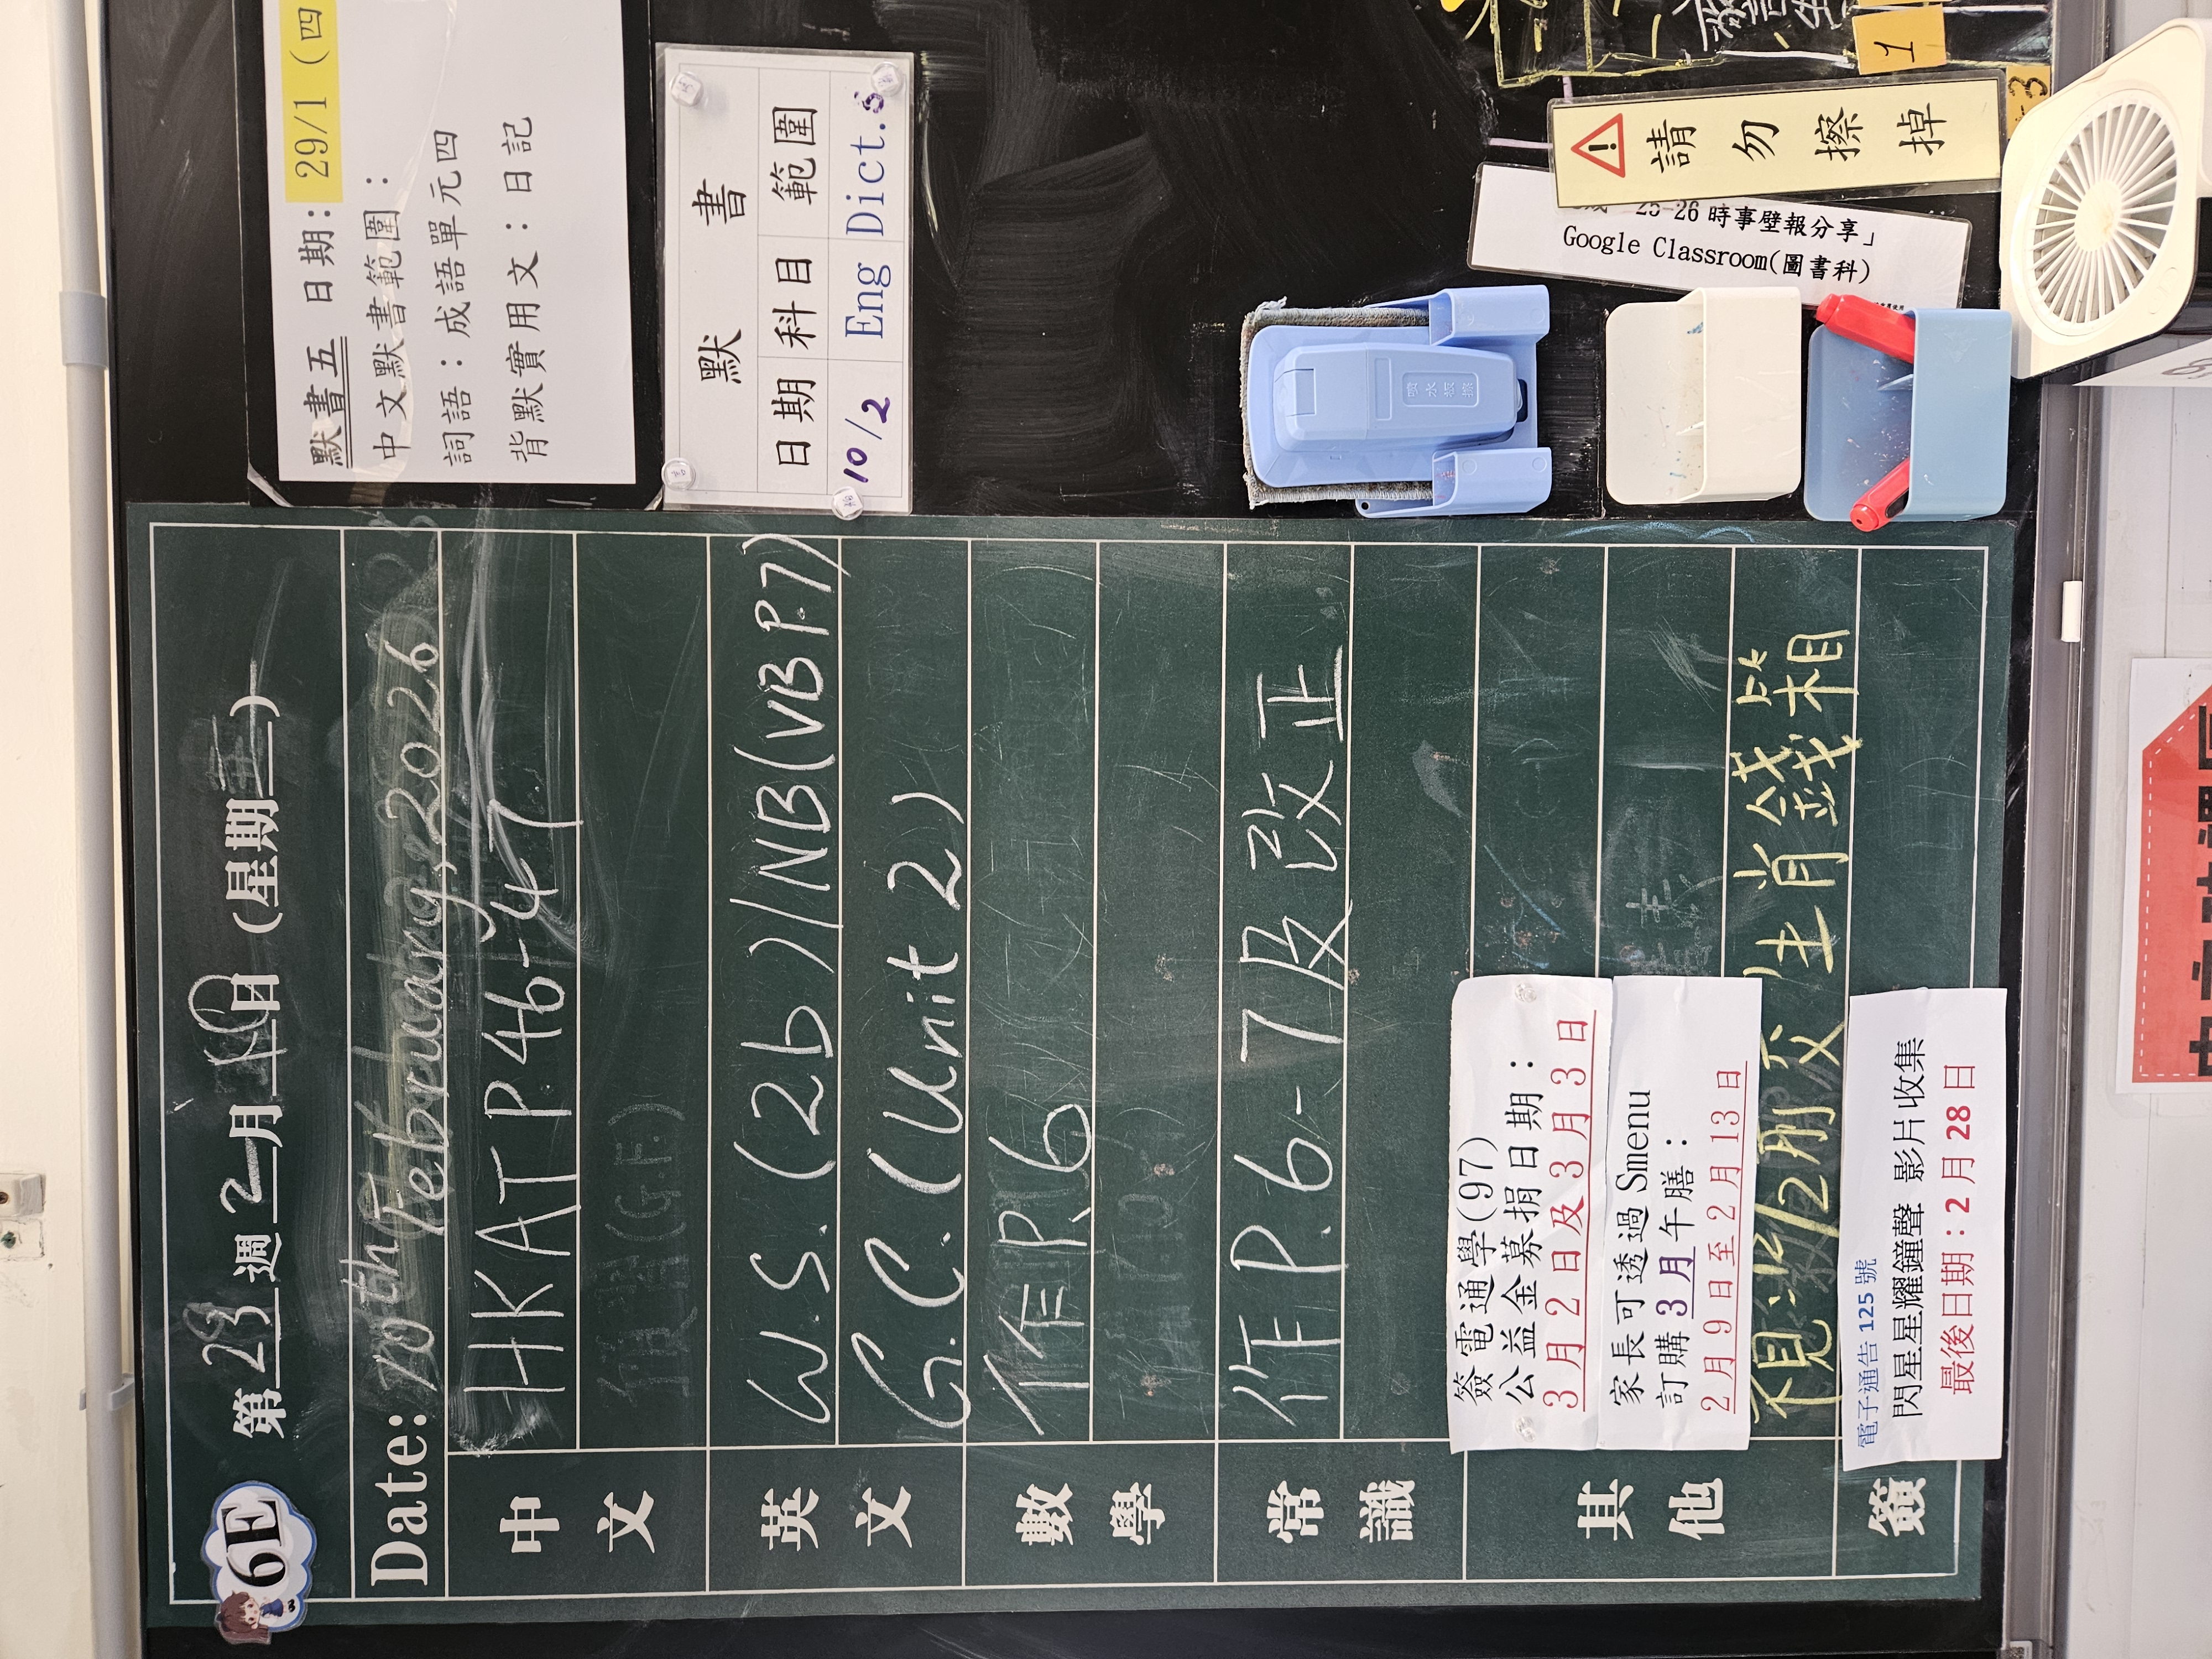 6E
第 23 週 2 月 10 日 (星期二)
Date: 10th February, 2026
中文
HKAT P.46-47
英文
W.S. (2b) / NB (VB P.7)
G.C. (Unit 2)
數學
作 P.6
常識
作 P.6-7 及改正
其他
簽電通學(97)
公益金募捐日期：
3月2日及3月3日
家長可透過 Smenu
訂購 3月午膳：
2月9日至2月13日
前交生肖錢箱
簽
電子通告 125 號
閃星星耀鐘聲 影片收集
最後日期：2月28日
默書五 日期: 29/1 (四
中文默書範圍：
詞語：成語單元四
背默實用文：日記
默 書
日期 科目 範圍
10/2 Eng Dict.8
噴水板擦
請勿擦掉
25-26 時事壁報分享」
Google Classroom(圖書科)
1